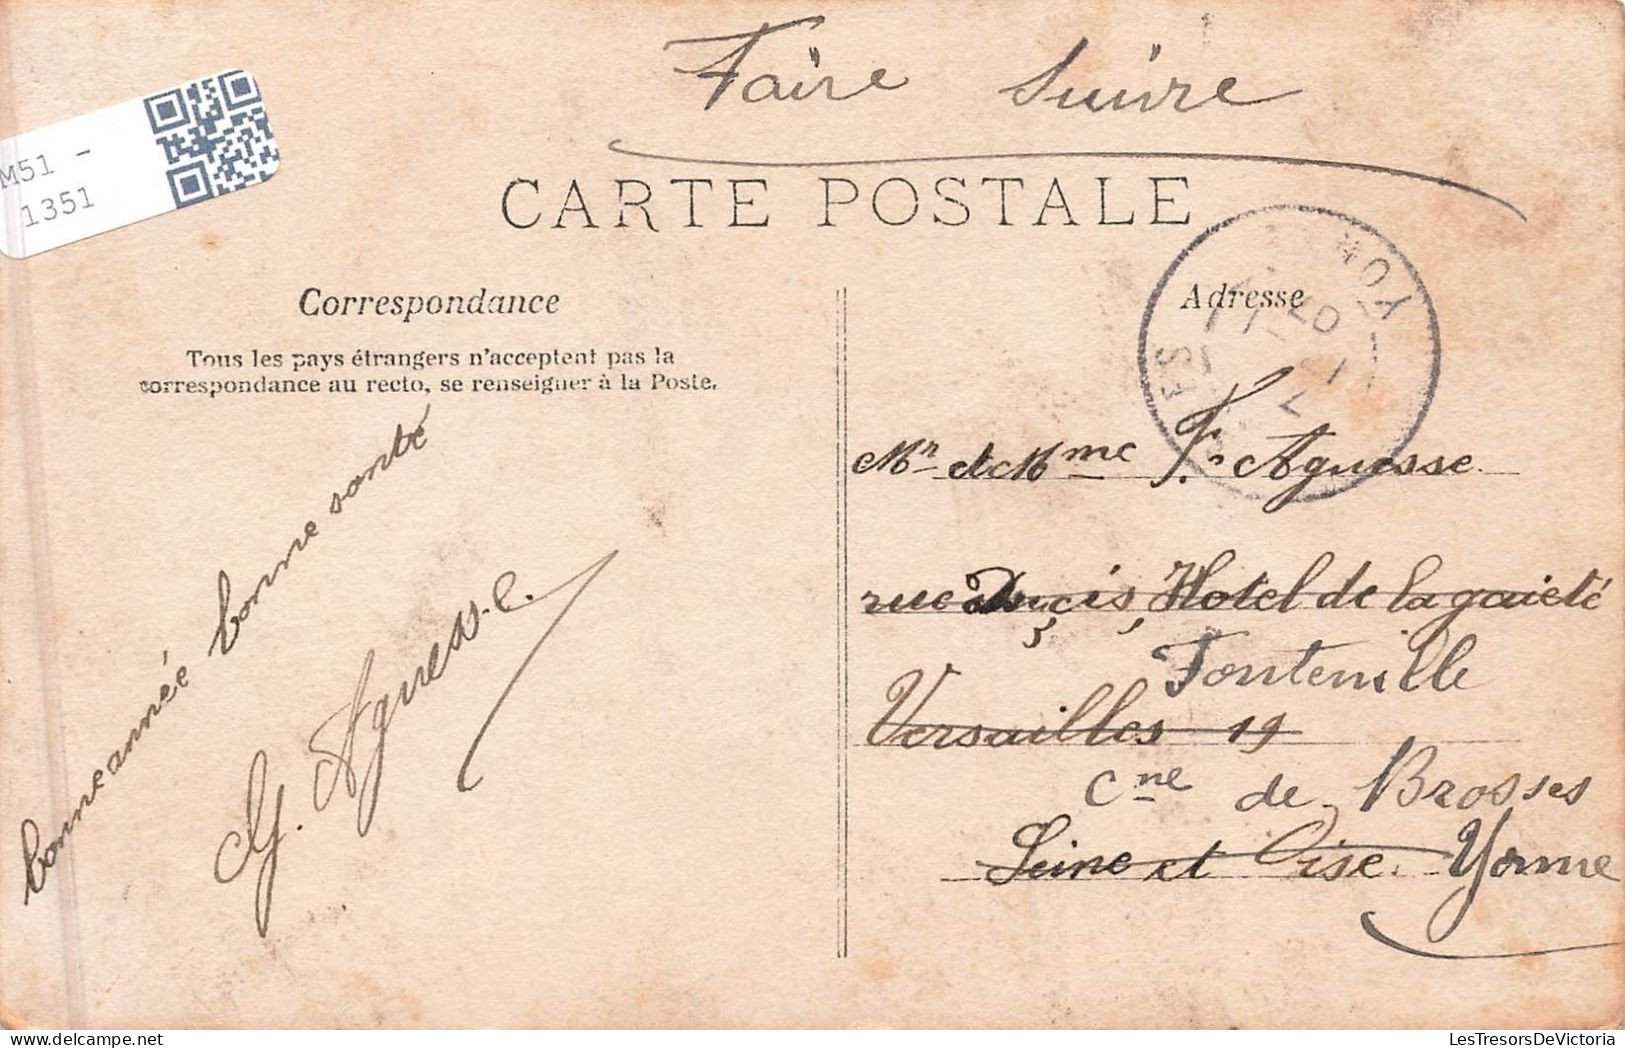 Faire Suivre
M51 -
1351
CARTE POSTALE
Correspondance
Adresse
Tous les pays étrangers n'acceptent pas la
correspondance au recto, se renseigner à la Poste.
YONNE
07
ES
bonne année bonne santé
Mr et Mme F. Agnesse
rue Duçis, Hotel de la gaieté
Fontenille
Versailles 19
Cne de Brosses
Seine et Oise. Yonne
LesTresorsDeVictoria